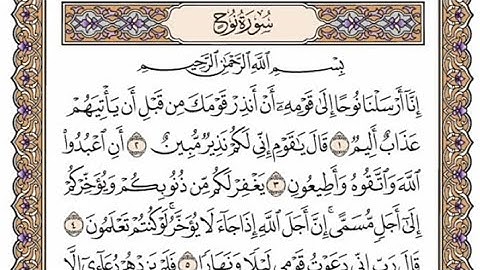 سُورَةُ نُوحٍ
بِسْمِ اللَّهِ الرَّحْمَٰنِ الرَّحِيمِ
إِنَّا أَرْسَلْنَا نُوحًا إِلَىٰ قَوْمِهِۦٓ أَنْ أَنذِرْ قَوْمَكَ مِن قَبْلِ أَن يَأْتِيَهُمْ
عَذَابٌ أَلِيمٌ ١ قَالَ يَٰقَوْمِ إِنِّي لَكُمْ نَذِيرٌ مُّبِينٌ ٢ أَنِ اعْبُدُوا۟
اللَّهَ وَاتَّقُوهُ وَأَطِيعُونِ ٣ يَغْفِرْ لَكُم مِّن ذُنُوبِكُمْ وَيُؤَخِّرْكُمْ
إِلَىٰٓ أَجَلٍ مُّسَمًّى ۚ إِنَّ أَجَلَ اللَّهِ إِذَا جَآءَ لَا يُؤَخَّرُ ۖ لَوْ كُنتُمْ تَعْلَمُونَ ٤
قَالَ رَبِّ إِنِّي دَعَوْتُ قَوْمِي لَيْلًا وَنَهَارًا ٥ فَلَمْ يَزِدْهُمْ دُعَآءِيٓ إِلَّا